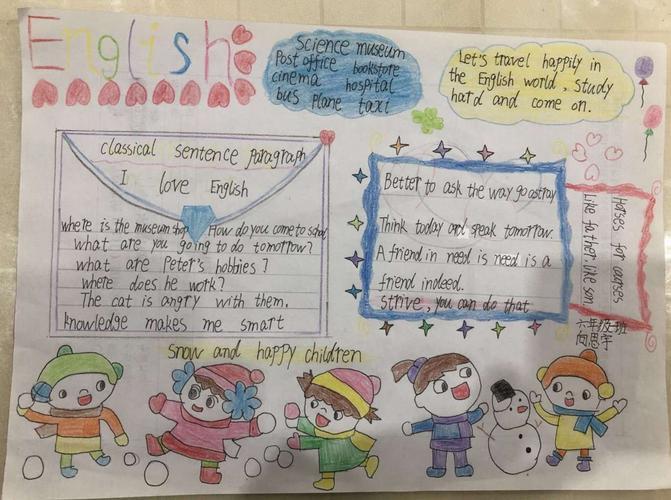 English
Science museum
Post office bookstore
cinema hospital
bus plane taxi
Let's travel happily in
the English world, Study
hard and come on.
classical sentence paragraph
I love English
where is the museum shop How do you come to school
what are you going to do tomorrow?
what are Peter's hobbies?
where does he work?
The cat is angry with them.
knowledge makes me smart
Better to ask the way go astray
Think today and speak tomorrow.
A friend in need is need is a
friend indeed.
strive, you can do that
Horses for courses
Like father, like son
六年级 班
向思宇
snow and happy children